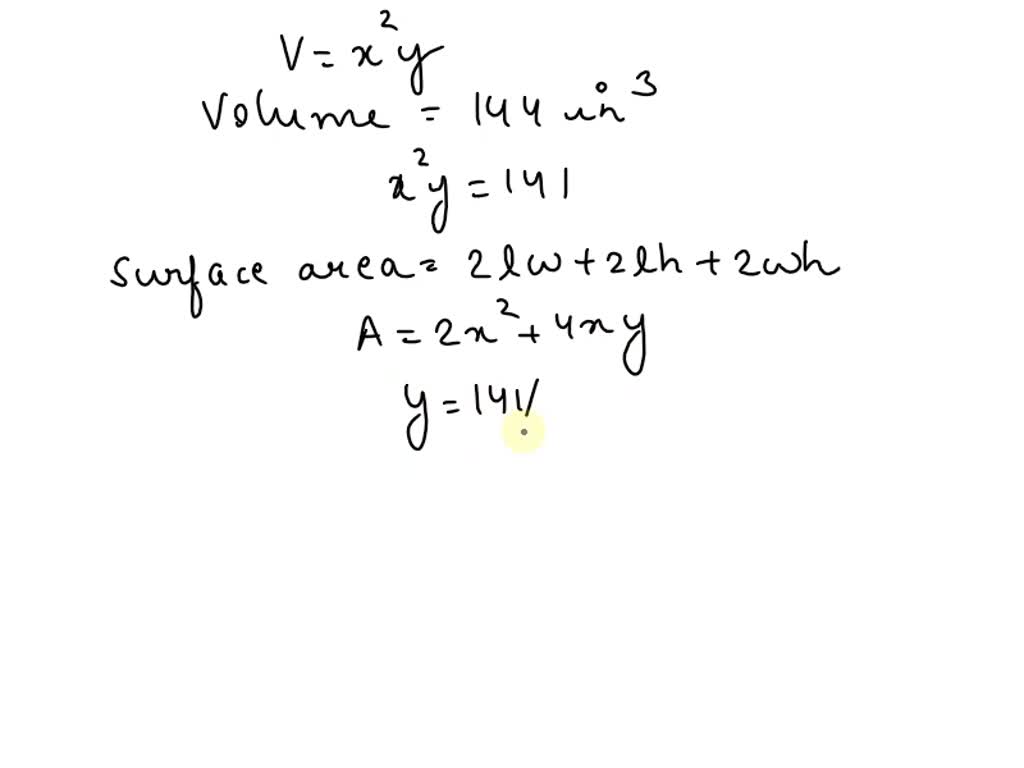 V = x²y
Volume = 144 in³
x²y = 141
Surface area = 2lw + 2lh + 2wh
A = 2x² + 4xy
y = 141/